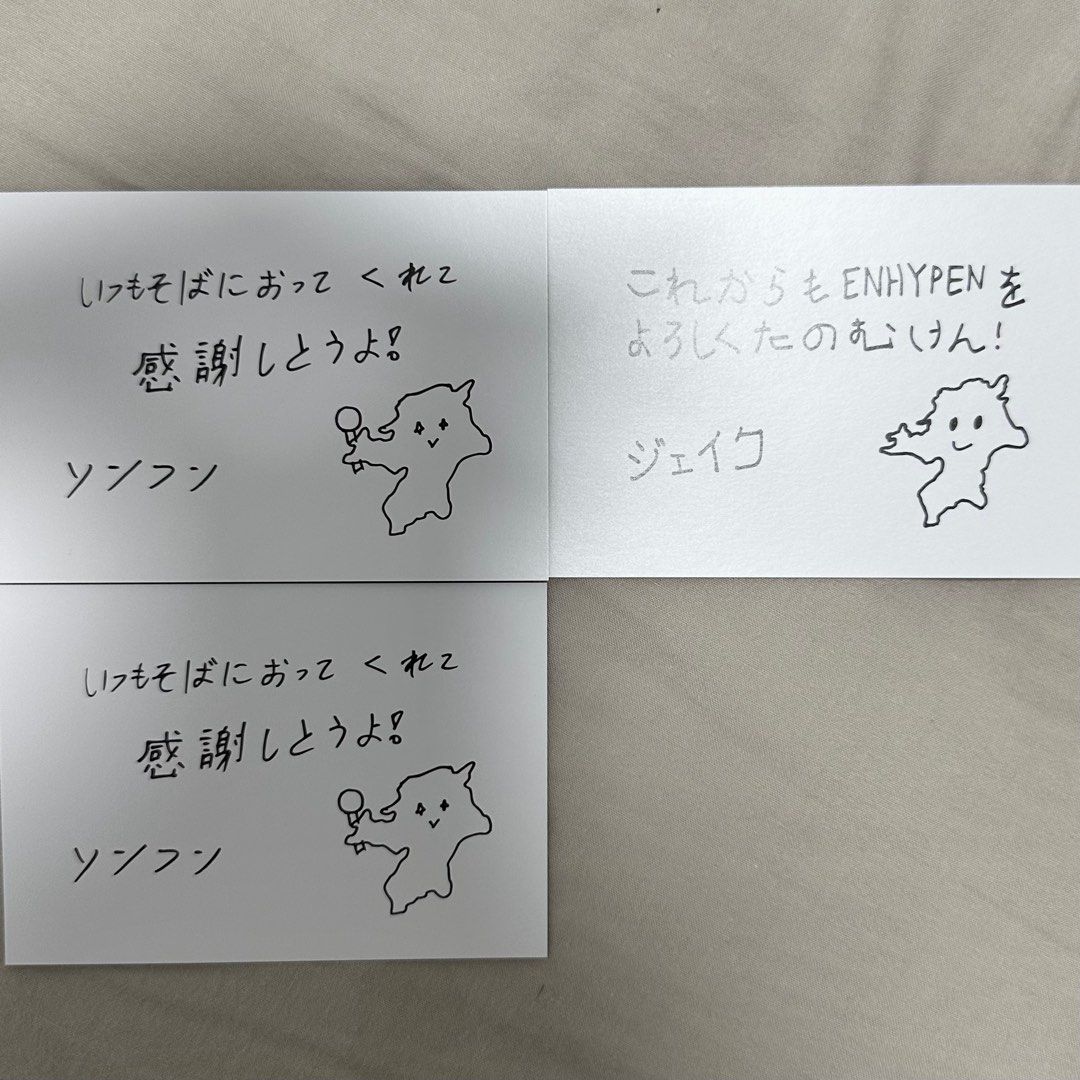 いつもそばにおって くれて
感謝しとうよ!
ソンフン
これからもENHYPENを
よろしくたのむけん!
ジェイク
いつもそばにおって くれて
感謝しとうよ!
ソンフン